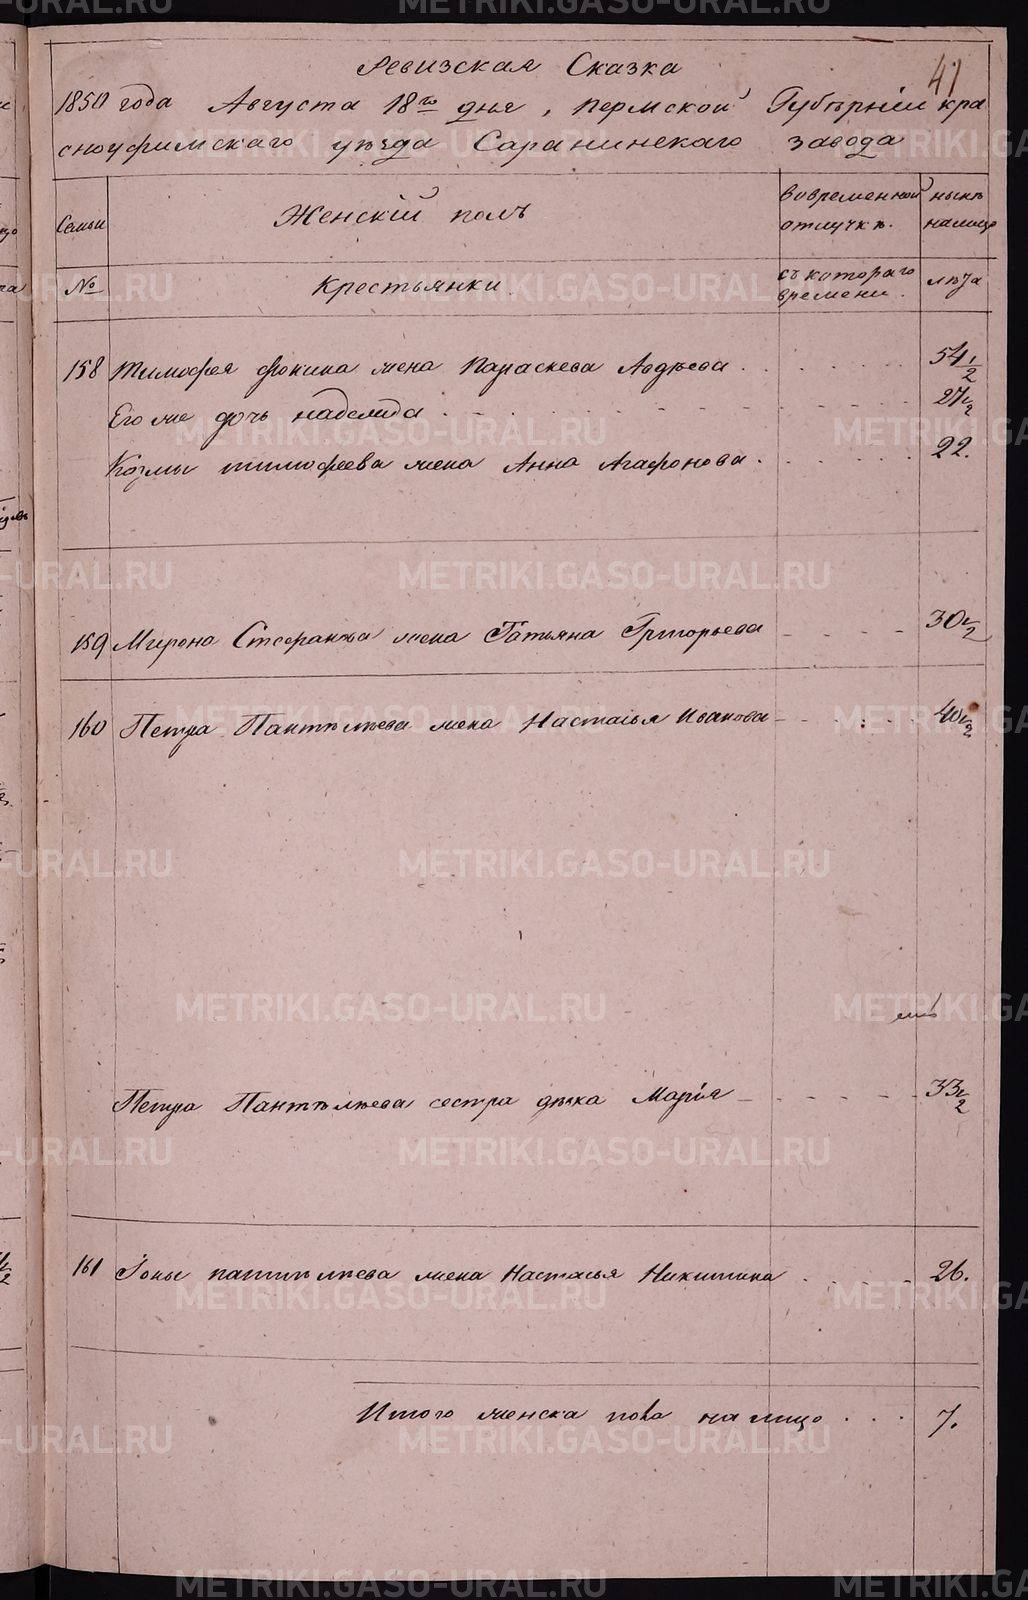 Ревизская Сказка
41
1850 года Августа 18го дня, Пермской Губѣрніи кра
сноуфимскаго уѣзда Саранинскаго завода
Семьи
Женскій полъ
вовременной отлучкѣ.
нынѣ налицо
№
Крестьянки
съ котораго времени.
лѣта
158 Тимофея Фокина жена Параскева Авдѣева 54 1/2
Его же дочь надежда 27 1/2
Козмы тимофеева жена Анна Агафонова 22.
159 Мирона Стефанова жена Татьяна Григорьева 30 1/2
160 Петра Пантѣлѣева жена Настасья Иванова 40 1/2
Петра Пантѣлѣева сестра дѣвка Марія 33 1/2
161 Іоны пантѣлѣева жена Настасья Никитина 26.
Итого женска пола на лицо 7.
METRIKI.GASO-URAL.RU